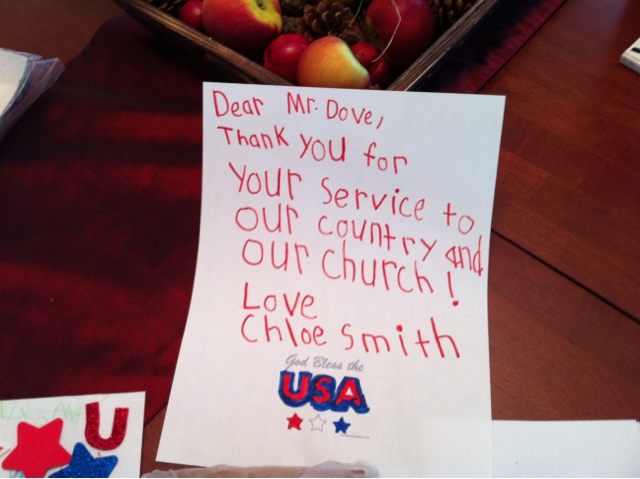 Dear Mr. Dove,
Thank you for
your service to
our country and
our church!
Love
Chloe Smith
God Bless the
USA
U